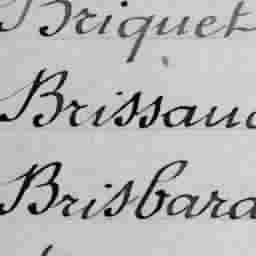 Briquet
Brissaud
Brisbard